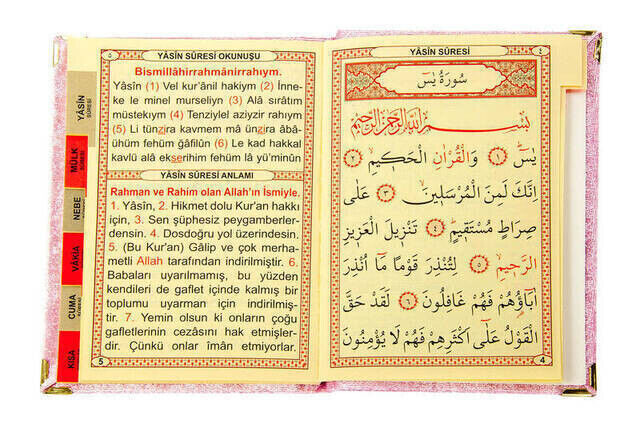 YÂSİN SÛRESİ
MÜLK
NEBE
VÂKIA
CUMA
KISA
٥
YÂSİN SÛRESİ OKUNUŞU
Bismillâhirrahmânirrahıym.
Yâsîn (1) Vel kur'ânil hakiym (2) İnne-
ke le minel murseliyn (3) Alâ sırâtım
müstekıym (4) Tenziylel aziyzir rahıym
(5) Li tünzira kavmem mâ ünzira âbâ-
ühüm fehüm ğâfilûn (6) Le kad hakkal
kavlü alâ ekserihim fehüm lâ yü'minûn
YÂSİN SÛRESİ ANLAMI
Rahman ve Rahim olan Allah'ın İsmiyle.
1. Yâsîn, 2. Hikmet dolu Kur'an hakkı
için, 3. Sen şüphesiz peygamberler-
densin. 4. Dosdoğru yol üzerindesin.
5. (Bu Kur'an) Gâlip ve çok merha-
metli Allah tarafından indirilmiştir. 6.
Babaları uyarılmamış, bu yüzden
kendileri de gaflet içinde kalmış bir
toplumu uyarman için indirilmiş-
tir. 7. Yemin olsun ki onların çoğu
gafletlerinin cezasını hak etmişler-
dir. Çünkü onlar îman etmiyorlar.
5
YÂSİN SÛRESİ
٤
سُورَةُ يٰسٓ
بِسْمِ اللّٰهِ الرَّحْمٰنِ الرَّحِيمِ
يٰسٓ ﴿١﴾ وَالْقُرْاٰنِ الْحَكِيمِ ﴿٢﴾
اِنَّكَ لَمِنَ الْمُرْسَلِينَ ﴿٣﴾ عَلٰى
صِرَاطٍ مُسْتَقِيمٍ ﴿٤﴾ تَنْزِيلَ الْعَزِيزِ
الرَّحِيمِ ﴿٥﴾ لِتُنْذِرَ قَوْمًا مَٓا اُنْذِرَ
اٰبَٓاؤُهُمْ فَهُمْ غَافِلُونَ ﴿٦﴾ لَقَدْ حَقَّ
الْقَوْلُ عَلٰٓى اَكْثَرِهِمْ فَهُمْ لَا يُؤْمِنُونَ
4